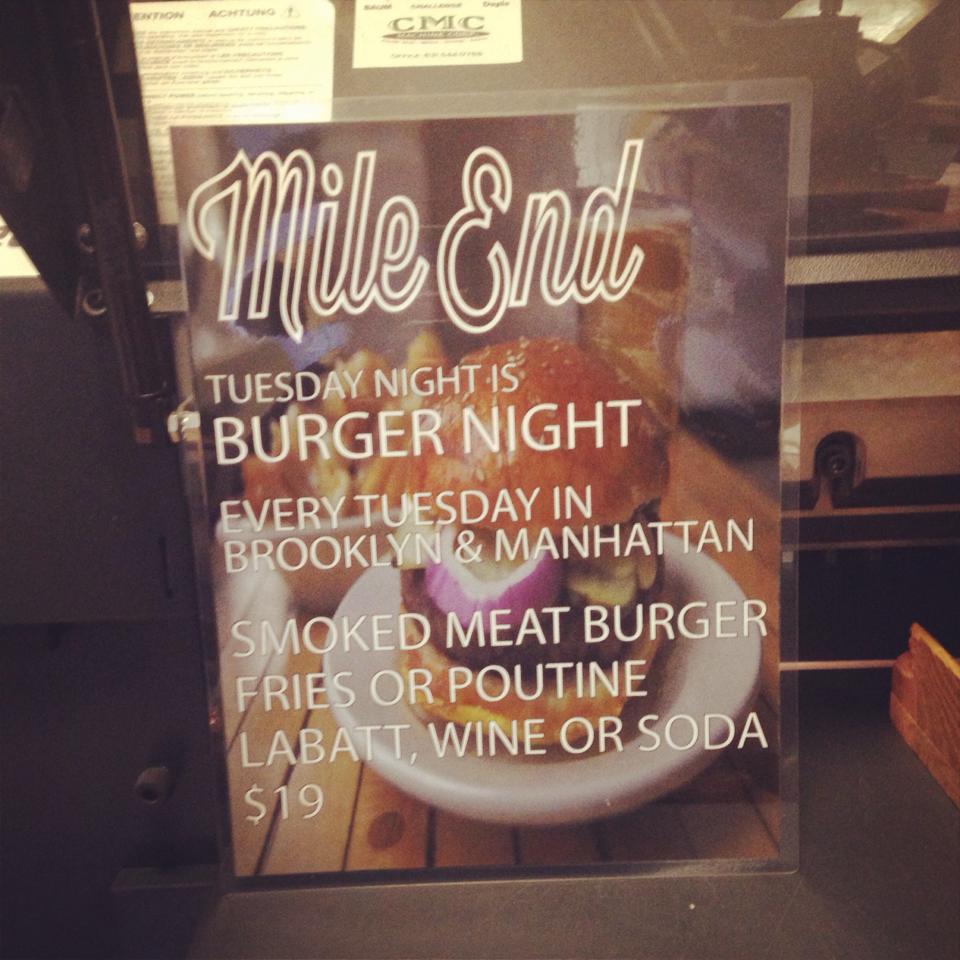 ENTION ACHTUNG
BAUM CHALLENGE Doyle
CMC
MACHINE CORP
Mile End
TUESDAY NIGHT IS
BURGER NIGHT
EVERY TUESDAY IN
BROOKLYN & MANHATTAN
SMOKED MEAT BURGER
FRIES OR POUTINE
LABATT, WINE OR SODA
$19